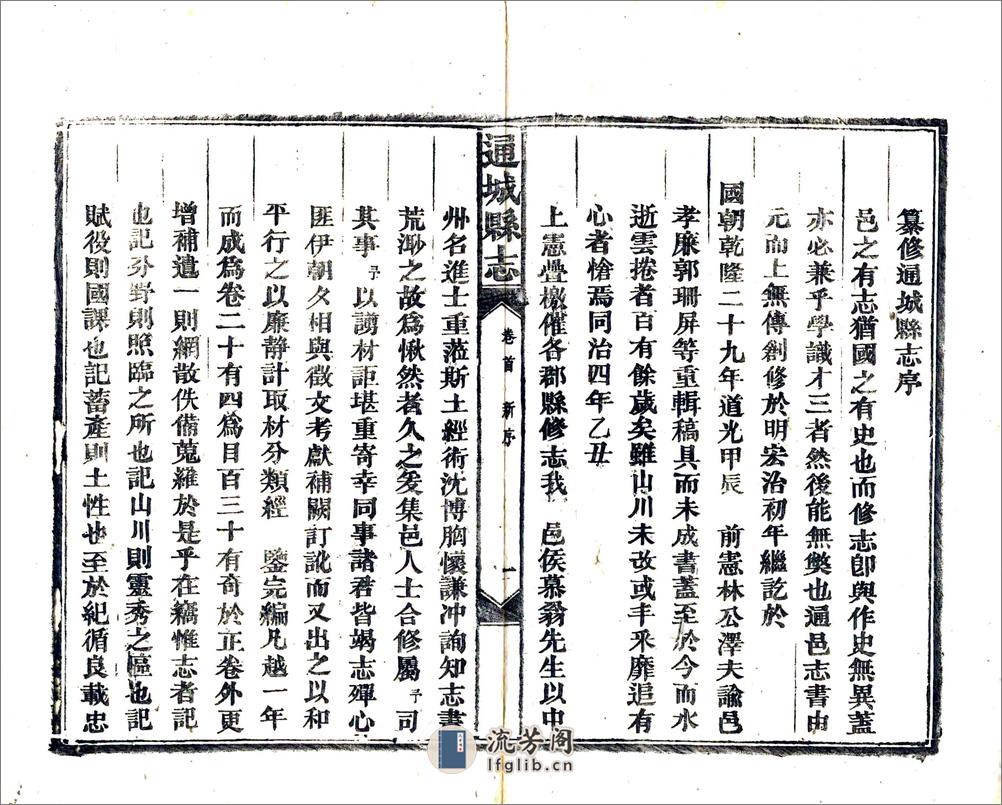 纂修通城縣志序
邑之有志猶國之有史也而修志卽與作史無異蓋
亦必兼乎學識才三者然後能無獘也通邑志書由
元而上無傳創修於明宏治初年繼訖於
國朝乾隆二十九年道光甲辰 前憲林公澤夫諭邑
孝廉郭珊屏等重輯稿具而未成書蓋至於今而水
逝雲捲者百有餘歲矣雖山川未改或丰采靡追有
心者愴焉同治四年乙丑
上憲疊檄催各郡縣修志我 邑侯慕翁先生以中
通城縣志
卷首 新序 一
州名進士重蒞斯土經術沈博胸懷謙冲詢知志書
荒渺之故爲愀然者久之爰集邑人士合修屬予司
其事予以謭材詎堪重寄幸同事諸君皆竭志殫心
匪伊朝夕相與徵文考獻補闕訂訛而又出之以和
平行之以廉静計取材分類經 鑒完編凡越一年
而成爲卷二十有四爲目百三十有奇於正卷外更
增補遺一則網散佚備蒐維於是乎在竊惟志者記
也記分野則照臨之所也記山川則靈秀之區也記
賦役則國課也記畜產則土性也至於紀循良載忠
流芳阁
lfglib.cn